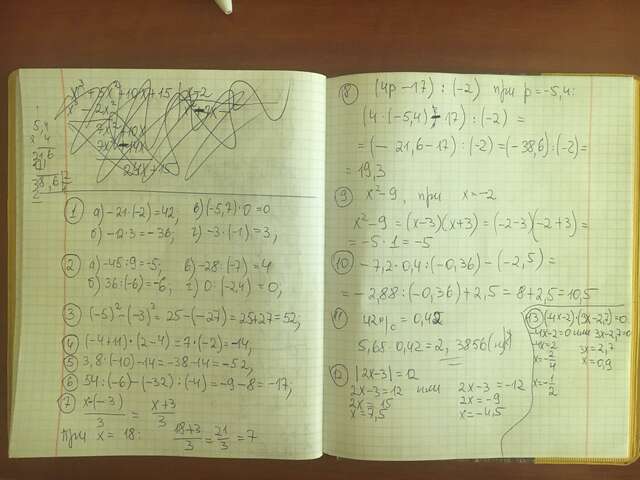 x³ + 5x² + 10x + 15 | x - 2
x³ - 2x²
7x² + 10x
7x² - 14x
24x + 15
5,4
x 4
21,6
38,6 | 2
1) а) -21·(-2) = 42, в) (-5,7)·0 = 0
б) -12·3 = -36; г) -3·(-1) = 3;
2) а) -45:9 = -5; в) -28:(-7) = 4
б) 36:(-6) = -6; г) 0:(-2,4) = 0;
3) (-5)² - (-3)³ = 25 - (-27) = 25+27 = 52;
4) (-4+11)·(2-4) = 7·(-2) = -14,
5) 3,8·(-10) - 14 = -38-14 = -52,
6) 54:(-6) - (-32):(-4) = -9-8 = -17;
7) x-(-3)/3 = x+3/3
при x = 18: 18+3/3 = 21/3 = 7
8) (4p - 17) : (-2) при p = -5,4:
(4·(-5,4) - 17) : (-2) =
= (-21,6-17) : (-2) = (-38,6) : (-2) =
= 19,3
9) x² - 9, при x = -2
x² - 9 = (x-3)(x+3) = (-2-3)(-2+3) =
= -5·1 = -5
10) -7,2·0,4:(-0,36) - (-2,5) =
= -2,88:(-0,36) + 2,5 = 8 + 2,5 = 10,5
11) 42% = 0,42
5,68·0,42 = 2,3856
12) |2x-3| = 12
2x-3 = 12 или 2x-3 = -12
2x = 15 2x = -9
x = 7,5 x = -4,5
13) (-4x-2)·(3x-2,7) = 0
-4x-2 = 0 или 3x-2,7 = 0
-4x = 2 3x = 2,7
x = -2/4 x = 0,9
x = -1/2